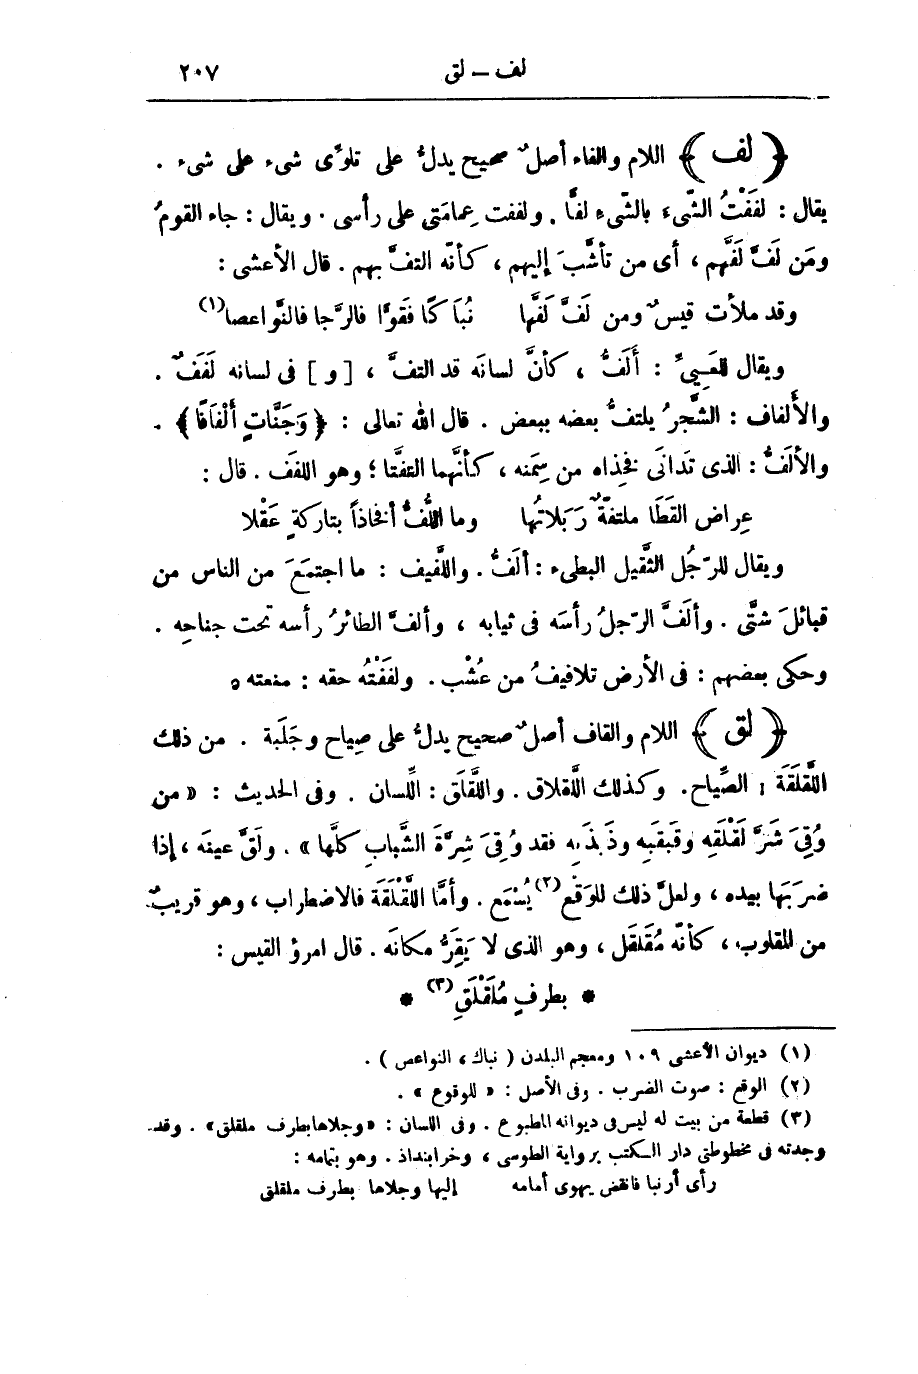 لف — لق ٢٠٧
﴿ لف ﴾ اللام والفاء أصلٌ صحيح يدلُّ على تلوِّى شىء على شىء .
يقال : لفَفْتُ الشّىءَ بالشّىءِ لفًّا . ولففت عِمامَتى على رأسى . ويقال : جاء القومُ
ومَن لَفَّ لَفَّهم ، أى من تأشَّبَ إليهم ، كأنّه التفَّ بهم . قال الأعشى :
وقد ملأت قيسٌ ومن لَفَّ لَفَّها نُبَاكًا فقَوًّا فالرَّجا فالنَّواعصا(١)
ويقال للعَيِىِّ : أَلَفُّ ، كأنَّ لسانَه قد التفَّ ، [ و ] فى لسانه لَفَفٌ .
والأَلفاف : الشَّجرُ يلتفُّ بعضه ببعض . قال الله تعالى : ﴿ وَجَنَّاتٍ أَلْفَافًا ﴾ .
والأَلَفُّ : الذى تَدَانَى فخِذاه من سِمَنه ، كأنَّهما التفَّتا ؛ وهو اللفَف . قال :
عِراض القَطَا ملتفّةٌ رَبَلاتُها وما اللُّفُّ أفخاذاً بتاركةٍ عَقْلا
ويقال للرّجُل الثَّقيل البطىء : ألَفُّ . واللَّفيف : ما اجتمَعَ من الناس من
قبائلَ شتَّى . وألَفَّ الرّجلُ رأسَه فى ثيابه ، وألفَّ الطائرُ رأسه تحت جناحِه .
وحكى بعضهم : فى الأرض تلافيفُ من عُشْب . ولفَفْتُه حقه : منعته ٥
﴿ لق ﴾ اللام والقاف أصلٌ صحيح يدلُّ على صِياح وجَلَبة . من ذلك
اللَّقلَقَة : الصِّياح. وكذلك اللَّقلاق . واللَّقلَق : اللِّسان . وفى الحديث : « من
وُقِىَ شَرَّ لَقْلَقِه وقَبقَبِه وذَبذَبِه فقد وُقِىَ شِرَّةَ الشَّبابِ كلَّها » . ولَقَّ عينَه ، إذا
ضرَبَها بيده ، ولعلَّ ذلك للوَقْع(٢) يُسْمَع . وأمَّا اللَّقْلَقَة فالاضطراب ، وهو قريبٌ
من المقلوب ، كأنّه مُقَلقَل ، وهو الذى لا يَقِرُّ مكانَه . قال امرؤ القيس :
* بطرفٍ مُلَقْلَقِ(٣) *
(١) ديوان الأعشى ١٠٩ ومعجم البلدن ( نباك ، النواعص ) .
(٢) الوقع : صوت الضرب . وفى الأصل : « للوقوع » .
(٣) قطعة من بيت له ليس فى ديوانه المطبوع . وفى اللسان : «وجلاها بطرف ملقلق» . وقد
وجدته فى مخطوطتى دار الكتب برواية الطوسى ، وخرابنداذ . وهو بتمامه :
رأى أرنبا فانقض يهوى أمامه إليها وجلاها بطرف ملقلق